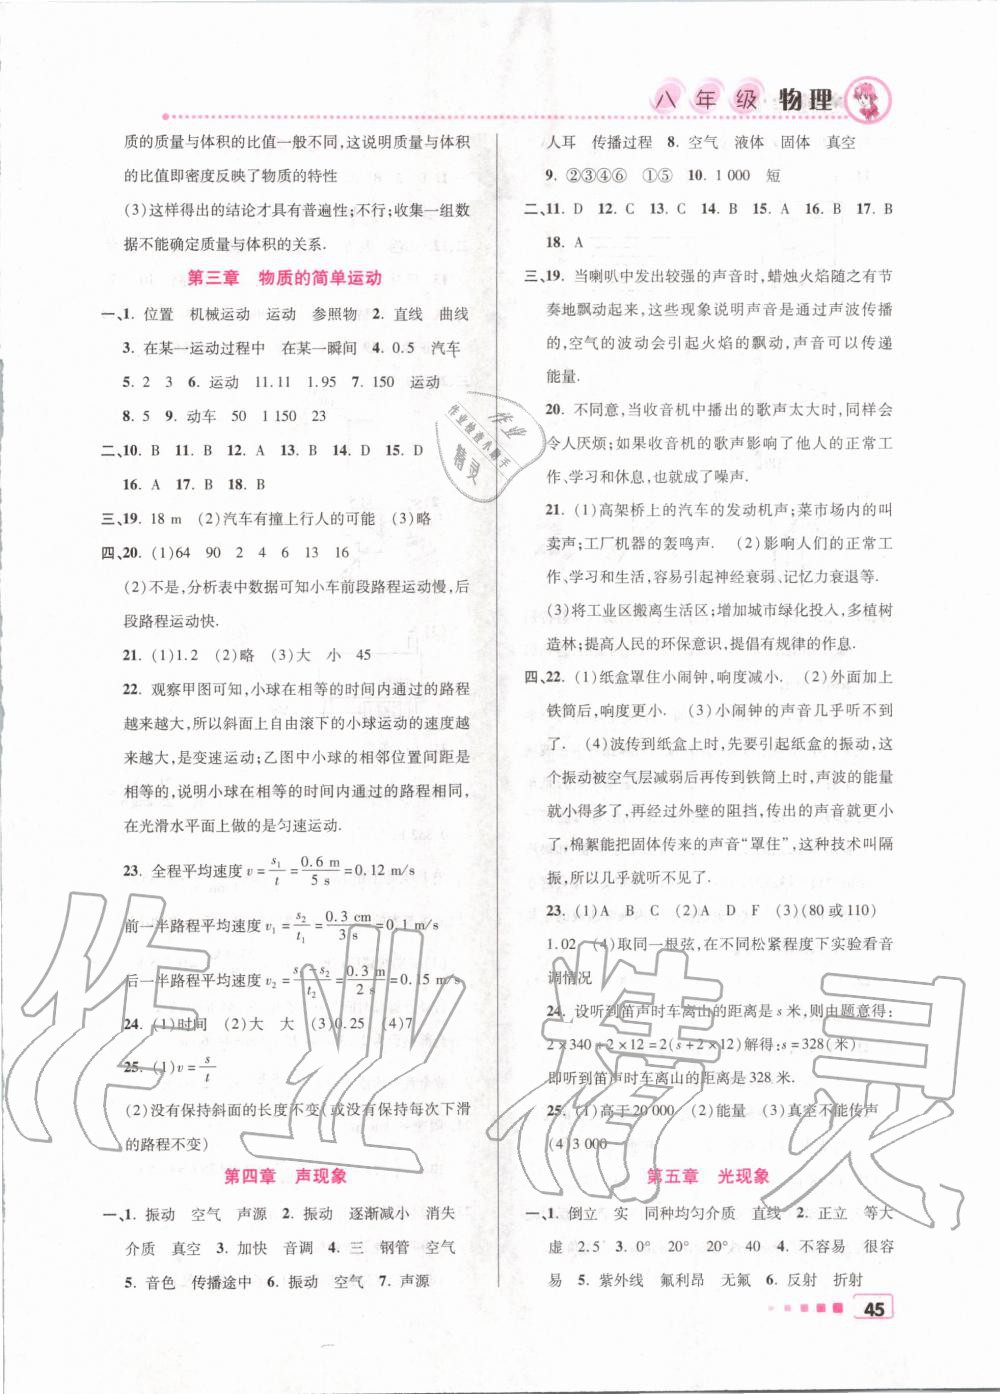 八年级 物理
质的质量与体积的比值一般不同,这说明质量与体积
的比值即密度反映了物质的特性
(3)这样得出的结论才具有普遍性;不行;收集一组数
据不能确定质量与体积的关系.
第三章 物质的简单运动
一、1. 位置 机械运动 运动 参照物 2. 直线 曲线
3. 在某一运动过程中 在某一瞬间 4. 0.5 汽车
5. 2 3 6. 运动 11.11 1.95 7. 150 运动
8. 5 9. 动车 50 1 150 23
二、10. B 11. B 12. A 13. B 14. D 15. D
16. A 17. B 18. B
三、19. 18 m (2)汽车有撞上行人的可能 (3)略
四、20. (1)64 90 2 4 6 13 16
(2)不是,分析表中数据可知小车前段路程运动慢,后
段路程运动快.
21. (1)1.2 (2)略 (3)大 小 45
22. 观察甲图可知,小球在相等的时间内通过的路程
越来越大,所以斜面上自由滚下的小球运动的速度越
来越大,是变速运动;乙图中小球的相邻位置间距是
相等的,说明小球在相等的时间内通过的路程相同,
在光滑水平面上做的是匀速运动.
23. 全程平均速度 v=s₁/t=0.6 m/5 s=0.12 m/s
前一半路程平均速度 v₁=s₂/t₁=0.3 cm/3 s=0.1 m/s
后一半路程平均速度 v₂=s₁-s₂/t₂=0.3 m/2 s=0.15 m/s
24. (1)时间 (2)大 大 (3)0.25 (4)7
25. (1)v=s/t
(2)没有保持斜面的长度不变(或没有保持每次下滑
的路程不变)
第四章 声现象
一、1. 振动 空气 声源 2. 振动 逐渐减小 消失
介质 真空 3. 加快 音调 4. 三 钢管 空气
5. 音色 传播途中 6. 振动 空气 7. 声源
人耳 传播过程 8. 空气 液体 固体 真空
9. ②③④⑥ ①⑤ 10. 1 000 短
二、11. D 12. C 13. C 14. B 15. A 16. B 17. B
18. A
三、19. 当喇叭中发出较强的声音时,蜡烛火焰随之有节
奏地飘动起来,这些现象说明声音是通过声波传播
的,空气的波动会引起火焰的飘动,声音可以传递
能量.
20. 不同意,当收音机中播出的歌声太大时,同样会
令人厌烦;如果收音机的歌声影响了他人的正常工
作、学习和休息,也就成了噪声.
21. (1)高架桥上的汽车的发动机声;菜市场内的叫
卖声;工厂机器的轰鸣声. (2)影响人们的正常工
作、学习和生活,容易引起神经衰弱、记忆力衰退等.
(3)将工业区搬离生活区;增加城市绿化投入,多植树
造林;提高人民的环保意识,提倡有规律的作息.
四、22. (1)纸盒罩住小闹钟,响度减小. (2)外面加上
铁筒后,响度更小. (3)小闹钟的声音几乎听不到
了. (4)波传到纸盒上时,先要引起纸盒的振动,这
个振动被空气层减弱后再传到铁筒上时,声波的能量
就小得多了,再经过外壁的阻挡,传出的声音就更小
了,棉絮能把固体传来的声音“罩住”,这种技术叫隔
振,所以几乎就听不见了.
23. (1)A B C (2)A D F (3)(80或110)
1.02 (4)取同一根弦,在不同松紧程度下实验看音
调情况
24. 设听到笛声时车离山的距离是 s 米,则由题意得:
2×340+2×12=2(s+2×12)解得:s=328(米)
即听到笛声时车离山的距离是 328 米.
25. (1)高于20 000 (2)能量 (3)真空不能传声
(4)3 000
第五章 光现象
一、1. 倒立 实 同种均匀介质 直线 2. 正立 等大
虚 2.5 3. 0° 20° 20° 40° 4. 不容易 很容
易 5. 紫外线 氟利昂 无氟 6. 反射 折射
45
作业
作业检查小助手
精灵
作业精灵